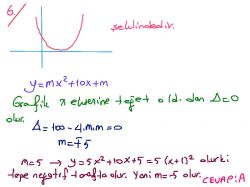 6.
şeklindedir.
y=mx²+10x+m
Grafik x eksenine teğet old.dan Δ=0
olur.
Δ=100-4.m.m=0
m=∓5
m=5 → y=5x²+10x+5=5(x+1)² olurki
tepe negatif tarafta olur. Yani m=-5 olur.
CEVAP:A